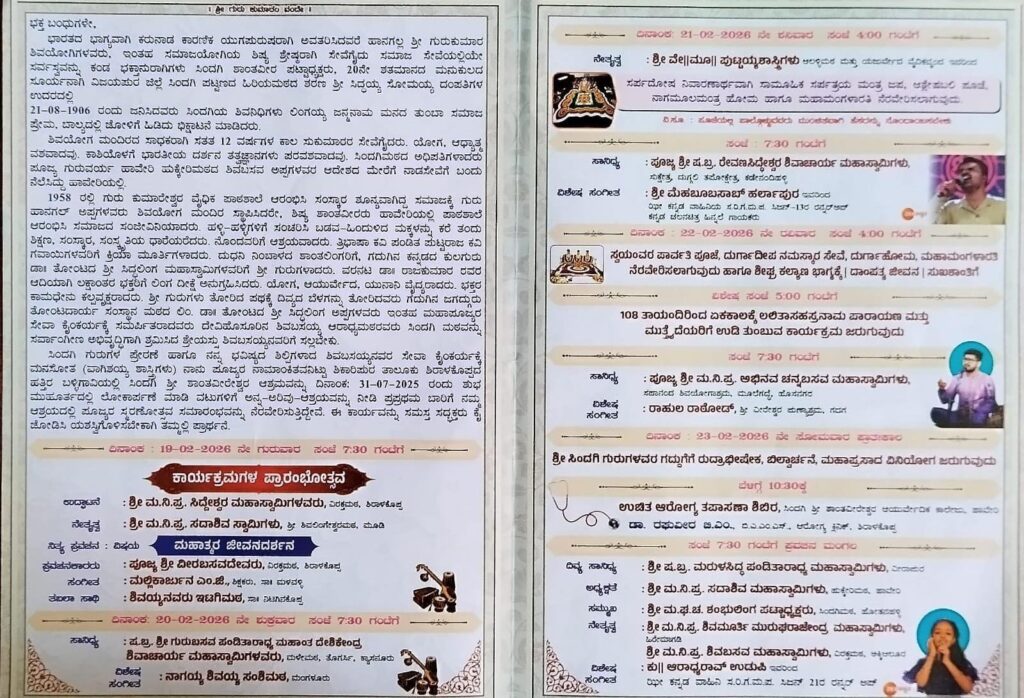 । ಶ್ರೀ ಗುರು ಕುಮಾರಂ ವಂದೇ ।
ಭಕ್ತ ಬಂಧುಗಳೇ,
ಭಾರತದ ಭಾಗ್ಯವಾಗಿ ಕರುನಾಡ ಕಾರಣಿಕ ಯುಗಪುರುಷರಾಗಿ ಅವತರಿಸಿದವರೆ ಹಾನಗಲ್ಲ ಶ್ರೀ ಗುರುಕುಮಾರ
ಶಿವಯೋಗಿಗಳವರು, ಇಂತಹ ಸಮಾಜಯೋಗಿಯ ಶಿಷ್ಯ ಶ್ರೇಷ್ಠರಾಗಿ ಸೇವೆಗೈದು ಸಮಾಜ ಸೇವೆಯಲ್ಲಿಯೇ
ಸರ್ವಸ್ವವನ್ನು ಕಂಡ ಭಕ್ತಾನುರಾಗಿಗಳು ಸಿಂದಗಿ ಶಾಂತವೀರ ಪಟ್ಟಾಧ್ಯಕ್ಷರು, 20ನೇ ಶತಮಾನದ ಮನುಕುಲದ
ಸೂರ್ಯನಾಗಿ ವಿಜಯಪುರ ಜಿಲ್ಲೆ ಸಿಂದಗಿ ಪಟ್ಟಣದ ಹಿರಿಯಮಠದ ಶರಣ ಶ್ರೀ ಸಿದ್ಧಯ್ಯ ಸೋಮಯ್ಯ ದಂಪತಿಗಳ
ಉದರದಲ್ಲಿ
21-08-1906 ರಂದು ಜನಿಸಿದವರು ಸಿಂದಗಿಯ ಶಿವನಿಧಿಗಳು ಲಿಂಗಯ್ಯ ಜನ್ಮನಾಮ ಮನದ ತುಂಬಾ ಸಮಾಜ
ಪ್ರೇಮ, ಬಾಲ್ಯದಲ್ಲಿ ಜೋಳಿಗೆ ಹಿಡಿದು ಭಿಕ್ಷಾಟನೆ ಮಾಡಿದರು.
ಶಿವಯೋಗ ಮಂದಿರದ ಸಾಧಕರಾಗಿ ಸತತ 12 ವರ್ಷಗಳ ಕಾಲ ಸುಕುಮಾರರ ಸೇವೆಗೈದರು. ಯೋಗ, ಆಧ್ಯಾತ್ಮ
ವಶವಾದವು. ಕಾಶಿಯೊಳಗೆ ಭಾರತೀಯ ದರ್ಶನ ತತ್ವಜ್ಞಾನಗಳು ಪರವಶವಾದವು. ಸಿಂದಗಿಮಠದ ಅಧಿಪತಿಗಳಾದರು
ಪೂಜ್ಯ ಗುರುವರ್ಯ ಹಾವೇರಿ ಹುಕ್ಕೇರಿಮಠದ ಶಿವಬಸವ ಅಪ್ಪಗಳವರ ಆದೇಶದ ಮೇರೆಗೆ ನಾಡಸೇವೆಗೆ ಬಂದು
ನೆಲೆಸಿದ್ದು ಹಾವೇರಿಯಲ್ಲಿ.
1958 ರಲ್ಲಿ ಗುರು ಕುಮಾರೇಶ್ವರ ವೈಧಿಕ ಪಾಠಶಾಲೆ ಆರಂಭಿಸಿ ಸಂಸ್ಕಾರ ಶೂನ್ಯವಾಗಿದ್ದ ಸಮಾಜಕ್ಕೆ ಗುರು
ಹಾನಗಲ್ ಅಪ್ಪಗಳವರು ಶಿವಯೋಗ ಮಂದಿರ ಸ್ಥಾಪಿಸಿದರೇ, ಶಿಷ್ಯ ಶಾಂತವೀರರು ಹಾವೇರಿಯಲ್ಲಿ ಪಾಠಶಾಲೆ
ಆರಂಭಿಸಿ ಸಮಾಜದ ಸಂಜೀವಿನಿಯಾದರು. ಹಳ್ಳಿ-ಹಳ್ಳಿಗಳಿಗೆ ಸಂಚರಿಸಿ ಬಡವ-ಹಿಂದುಳಿದ ಮಕ್ಕಳನ್ನು ಕರೆ ತಂದು
ಶಿಕ್ಷಣ, ಸಂಸ್ಕಾರ, ಸಂಸ್ಕೃತಿಯ ಧಾರೆಯೆರೆದರು. ನೊಂದವರಿಗೆ ಆಶ್ರಯವಾದರು. ತ್ರಿಭಾಷಾ ಕವಿ ಪಂಡಿತ ಪುಟ್ಟರಾಜ ಕವಿ
ಗವಾಯಿಗಳವರಿಗೆ ಕ್ರಿಯಾ ಮೂರ್ತಿಗಳಾದರು. ದುಧನಿ ನಿಂಬಾಳದ ಶಾಂತಲಿಂಗರಿಗೆ, ಗದುಗಿನ ಕನ್ನಡದ ಕುಲಗುರು
ಡಾ ತೋಂಟದ ಶ್ರೀ ಸಿದ್ಧಲಿಂಗ ಮಹಾಸ್ವಾಮಿಗಳವರಿಗೆ ಶ್ರೀ ಗುರುಗಳಾದರು. ವರನಟ ಡಾ: ರಾಜಕುಮಾರ ರವರ
ಆದಿಯಾಗಿ ಲಕ್ಷಾಂತರ ಭಕ್ತರಿಗೆ ಲಿಂಗ ದೀಕ್ಷೆ ಅನುಗ್ರಹಿಸಿದರು. ಯೋಗ, ಆಯುರ್ವೇದ, ಯುನಾನಿ ವೈದ್ಯರಾದರು. ಭಕ್ತರ
ಕಾಮಧೇನು ಕಲ್ಪವೃಕ್ಷರಾದರು. ಶ್ರೀ ಗುರುಗಳು ತೋರಿದ ಪಥಕ್ಕೆ ದಿವ್ಯದ ಬೆಳಗನ್ನು ತೋರಿದವರು ಗದುಗಿನ ಜಗದ್ಗುರು
ತೋಂಟದಾರ್ಯ ಸಂಸ್ಥಾನ ಮಠದ ಲಿಂ. ಡಾ: ತೋಂಟದ ಶ್ರೀ ಸಿದ್ಧಲಿಂಗ ಅಪ್ಪಗಳವರು ಇಂತಹ ಮಹಾಪೂಜ್ಯರ
ಸೇವಾ ಕೈಂಕರ್ಯಕ್ಕೆ ಸಮರ್ಪಿತರಾದವರು ದೇವಿಹೊಸೂರಿನ ಶಿವಬಸಯ್ಯ ಆರಾಧ್ಯಮಠರವರು ಸಿಂದಗಿ ಮಠವನ್ನು
ಸರ್ವಾಂಗೀಣ ಅಭಿವೃದ್ಧಿಗಾಗಿ ಶ್ರಮಿಸಿದ ಶ್ರೇಯಸ್ಸು ಶಿವಬಸಯ್ಯನವರಿಗೆ ಸಲ್ಲಬೇಕು.
ಸಿಂದಗಿ ಗುರುಗಳ ಪ್ರೇರಣೆ ಹಾಗೂ ನನ್ನ ಭವಿಷ್ಯದ ಶಿಲ್ಪಿಗಳಾದ ಶಿವಬಸಯ್ಯನವರ ಸೇವಾ ಕೈಂಕರ್ಯಕ್ಕೆ
ಮನಸೋತ (ವಾಗೀಶಯ್ಯ ಶಾಸ್ತ್ರಿಗಳು) ನಾನು ಪೂಜ್ಯರ ನಾಮಾಂಕಿತವನಿಟ್ಟು ಶಿಕಾರಿಪುರ ತಾಲೂಕು ಶಿರಾಳಕೊಪ್ಪದ
ಹತ್ತಿರ ಬಳ್ಳಿಗಾವಿಯಲ್ಲಿ ಸಿಂದಗಿ ಶ್ರೀ ಶಾಂತವೀರೇಶ್ವರ ಆಶ್ರಮವನ್ನು ದಿನಾಂಕ: 31-07-2025 ರಂದು ಶುಭ
ಮುಹೂರ್ತದಲ್ಲಿ ಲೋಕಾರ್ಪಣೆ ಮಾಡಿ ವಟುಗಳಿಗೆ ಅನ್ನ-ಅರಿವು-ಆಶ್ರಯವನ್ನು ನೀಡಿ ಪ್ರಪ್ರಥಮ ಬಾರಿಗೆ ನಮ್ಮ
ಆಶ್ರಯದಲ್ಲಿ ಪೂಜ್ಯರ ಸ್ಮರಣೋತ್ಸವ ಸಮಾರಂಭವನ್ನು ನೆರವೇರಿಸುತ್ತಿದ್ದೇವೆ. ಈ ಕಾರ್ಯವನ್ನು ಸಮಸ್ತ ಸದ್ಭಕ್ತರು ಕೈ
ಜೋಡಿಸಿ ಯಶಸ್ವಿಗೊಳಿಸಬೇಕಾಗಿ ತಮ್ಮಲ್ಲಿ ಪ್ರಾರ್ಥನೆ.
ದಿನಾಂಕ : 19-02-2026 ನೇ ಗುರುವಾರ ಸಂಜೆ 7:30 ಗಂಟೆಗೆ
ಕಾರ್ಯಕ್ರಮಗಳ ಪ್ರಾರಂಭೋತ್ಸವ
ಉದ್ಘಾಟನೆ : ಶ್ರೀ ಮ.ನಿ.ಪ್ರ. ಸಿದ್ದೇಶ್ವರ ಮಹಾಸ್ವಾಮಿಗಳವರು, ವಿರಕ್ತಮಠ, ಶಿರಾಳಕೊಪ್ಪ
ನೇತೃತ್ವ : ಶ್ರೀ ಮ.ನಿ.ಪ್ರ. ಸದಾಶಿವ ಸ್ವಾಮಿಗಳು, ಶ್ರೀ ಶಿವಲಿಂಗೇಶ್ವರಮಠ, ಮೂಡಿ
ನಿತ್ಯ ಪ್ರವಚನ : ವಿಷಯ ಮಹಾತ್ಮರ ಜೀವನದರ್ಶನ
ಪ್ರವಚನಕಾರರು : ಪೂಜ್ಯ ಶ್ರೀ ವೀರಬಸವದೇವರು, ವಿರಕ್ತಮಠ, ಶಿರಾಳಕೊಪ್ಪ
ಸಂಗೀತ : ಮಲ್ಲಿಕಾರ್ಜುನ ಎಂ.ಜಿ., ಶಿಕ್ಷಕರು, ಸಾ: ಮಳವಳ್ಳಿ
ತಬಲಾ ಸಾಥಿ : ಶಿವಯ್ಯನವರು ಇಟಗಿಮಠ, ಸಾ: ನಿಟಗಿನಕೊಪ್ಪ
ದಿನಾಂಕ: 20-02-2026 ನೇ ಶುಕ್ರವಾರ ಸಂಜೆ 7:30 ಗಂಟೆಗೆ
ಸಾನಿಧ್ಯ : ಷ.ಬ್ರ. ಶ್ರೀ ಗುರುಬಸವ ಪಂಡಿತಾರಾಧ್ಯ ಮಹಾಂತ ದೇಶಿಕೇಂದ್ರ
ಶಿವಾಚಾರ್ಯ ಮಹಾಸ್ವಾಮಿಗಳವರು, ಮಳೇಮಠ, ತೊಗರ್ಸಿ, ಕ್ಯಾಸನೂರು
ವಿಶೇಷ ಸಂಗೀತ : ನಾಗಯ್ಯ ಶಿವಯ್ಯ ಸಂಶಿಮಠ, ಮಂಗಳೂರು
ದಿನಾಂಕ: 21-02-2026 ನೇ ಶನಿವಾರ ಸಂಜೆ 4:00 ಗಂಟೆಗೆ
ನೇತೃತ್ವ : ಶ್ರೀ ವೇ||ಮೂ|| ಪುಟ್ಟಯ್ಯಶಾಸ್ತ್ರಿಗಳು
ಸರ್ಪದೋಷ ನಿವಾರಣಾರ್ಥವಾಗಿ ಸಾಮೂಹಿಕ ಸರ್ಪತ್ರಯ ಮಂತ್ರ ಜಪ, ಆಶ್ಲೇಷಬಲಿ ಪೂಜೆ,
ನಾಗಮೂಲಮಂತ್ರ ಹೋಮ ಹಾಗೂ ಮಹಾಮಂಗಳಾರತಿ ನೆರವೇರಿಸಲಾಗುವುದು.
ವಿ.ಸೂ : ಪೂಜೆಯಲ್ಲಿ ಪಾಲ್ಗೊಳ್ಳುವವರು ಮುಂಚಿತವಾಗಿ ಹೆಸರನ್ನು ನೊಂದಾಯಿಸಬೇಕು.
ಸಂಜೆ : 7:30 ಗಂಟೆಗೆ
ಸಾನಿಧ್ಯ : ಪೂಜ್ಯ ಶ್ರೀ ಷ.ಬ್ರ. ರೇವಣಸಿದ್ಧೇಶ್ವರ ಶಿವಾಚಾರ್ಯ ಮಹಾಸ್ವಾಮಿಗಳು,
ಸುಕ್ಷೇತ್ರ, ದುಗ್ಲಿ ತಪೋಕ್ಷೇತ್ರ, ಕಡೇನಂದಿಹಳ್ಳಿ
ವಿಶೇಷ ಸಂಗೀತ : ಶ್ರೀ ಮೆಹಬೂಬಸಾಬ್ ಹರ್ಲಾಪುರ ಇವರಿಂದ
ಝೀ ಕನ್ನಡ ವಾಹಿನಿಯ ಸ.ರಿ.ಗ.ಮ.ಪ. ಸಿಜನ್-13ರ ರನ್ನರ್‌ಅಪ್
ಕನ್ನಡ ಚಲನಚಿತ್ರ ಹಿನ್ನಲೆ ಗಾಯಕರು
ದಿನಾಂಕ : 22-02-2026 ನೇ ರವಿವಾರ ಸಂಜೆ 4:00 ಗಂಟೆಗೆ
ಸ್ವಯಂವರ ಪಾರ್ವತಿ ಪೂಜೆ, ದುರ್ಗಾದೀಪ ನಮಸ್ಕಾರ ಸೇವೆ, ದುರ್ಗಾಹೋಮ, ಮಹಾಮಂಗಳಾರತಿ
ನೆರವೇರಿಸಲಾಗುವುದು ಹಾಗೂ ಶೀಘ್ರ ಕಲ್ಯಾಣ ಭಾಗ್ಯಕ್ಕೆ | ದಾಂಪತ್ಯ ಜೀವನ | ಸುಖಶಾಂತಿಗೆ
ವಿಶೇಷ ಸಂಜೆ 5:00 ಗಂಟೆಗೆ
108 ತಾಯಂದಿರಿಂದ ಏಕಕಾಲಕ್ಕೆ ಲಲಿತಾಸಹಸ್ರನಾಮ ಪಾರಾಯಣ ಮತ್ತು
ಮುತ್ತೈದೆಯರಿಗೆ ಉಡಿ ತುಂಬುವ ಕಾರ್ಯಕ್ರಮ ಜರುಗುವುದು
ಸಂಜೆ 7:30 ಗಂಟೆಗೆ
ಸಾನಿಧ್ಯ : ಪೂಜ್ಯ ಶ್ರೀ ಮ.ನಿ.ಪ್ರ. ಅಭಿನವ ಚನ್ನಬಸವ ಮಹಾಸ್ವಾಮಿಗಳು,
ಸಹಾನಂದ ಶಿವಯೋಗಾಶ್ರಮ, ಮೂಲೆಗದ್ದೆ, ಹೊಸನಗರ
ವಿಶೇಷ ಸಂಗೀತ : ರಾಹುಲ ರಾಠೋಡ್, ಶ್ರೀ ವೀರೇಶ್ವರ ಪುಣ್ಯಾಶ್ರಮ, ಗದಗ
ದಿನಾಂಕ : 23-02-2026 ನೇ ಸೋಮವಾರ ಪ್ರಾತಃಕಾಲ
ಶ್ರೀ ಸಿಂದಗಿ ಗುರುಗಳವರ ಗದ್ದುಗೆಗೆ ರುದ್ರಾಭಿಷೇಕ, ಬಿಲ್ವಾರ್ಚನೆ, ಮಹಾಪ್ರಸಾದ ವಿನಿಯೋಗ ಜರುಗುವುದು
ಬೆಳಿಗ್ಗೆ 10:30ಕ್ಕೆ
ಉಚಿತ ಆರೋಗ್ಯ ತಪಾಸಣಾ ಶಿಬಿರ, ಸಿಂದಗಿ ಶ್ರೀ ಶಾಂತವೀರೇಶ್ವರ ಆಯುರ್ವೇದಿಕ ಕಾಲೇಜು, ಹಾವೇರಿ
ಡಾ. ರಘುವೀರ ಬಿ.ಎಂ., ಬಿ.ಎ.ಎಂ.ಎಸ್., ಆರೋಗ್ಯ ಕ್ಲಿನಿಕ್, ಶಿರಾಳಕೊಪ್ಪ
ಸಂಜೆ 7:30 ಗಂಟೆಗೆ ಪ್ರವಚನ ಮಂಗಲ
ದಿವ್ಯ ಸಾನಿಧ್ಯ : ಶ್ರೀ ಷ.ಬ್ರ. ಮರುಳಸಿದ್ಧ ಪಂಡಿತಾರಾಧ್ಯ ಮಹಾಸ್ವಾಮಿಗಳು, ವೀರಾಪುರ
ಅಧ್ಯಕ್ಷತೆ : ಶ್ರೀ ಮ.ನಿ.ಪ್ರ. ಸದಾಶಿವ ಮಹಾಸ್ವಾಮಿಗಳು, ಹುಕ್ಕೇರಿಮಠ, ಹಾವೇರಿ
ಸಮ್ಮುಖ : ಶ್ರೀ ಮ.ಘ.ಚ. ಶಂಭುಲಿಂಗ ಪಟ್ಟಾಧ್ಯಕ್ಷರು, ಸಿಂದಗಿಮಠ, ಹೋತನಹಳ್ಳಿ
ನೇತೃತ್ವ : ಶ್ರೀ ಮ.ನಿ.ಪ್ರ. ಶಿವಮೂರ್ತಿ ಮುರುಘರಾಜೇಂದ್ರ ಮಹಾಸ್ವಾಮಿಗಳು,
ಹಿರೇಮಾಗಡಿ
ಶ್ರೀ ಮ.ನಿ.ಪ್ರ. ಶಿವಬಸವ ಮಹಾಸ್ವಾಮಿಗಳು, ವಿರಕ್ತಮಠ, ಅಕ್ಕಿಆಲೂರ
ವಿಶೇಷ ಸಂಗೀತ : ಕು|| ಆರಾಧ್ಯರಾವ್ ಉಡುಪಿ ಇವರಿಂದ
ಝೀ ಕನ್ನಡ ವಾಹಿನಿ ಸ.ರಿ.ಗ.ಮ.ಪ. ಸಿಜನ್ 21ರ ರನ್ನರ್ ಅಪ್